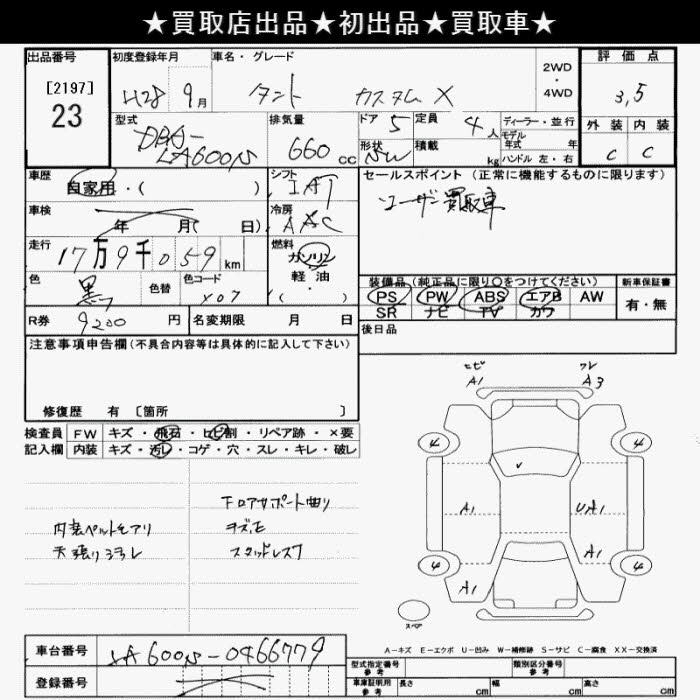 ★買取店出品★初出品★買取車★
出品番号 初度登録年月 車名・グレード 2WD・4WD 評価点
[2197]
23
H28 9月 タント カスタム X 3,5
型式 排気量 ドア 定員 ディーラー・並行 外装 内装
DBA-LA600S 660cc 5 4人 モデル年式 年
形状 積載 kg ハンドル 左・右 C C
車歴 シフト セールスポイント(正常に機能するものに限ります)
自家用・( ) IAT
ユーザー買取車
車検 年 月( 日) 冷房 AAC
走行 17万9千059km 燃料 ガソリン
軽・油
・( )
色 色替 色コード 装備品(純正品に限り○をつけてください) 新車保証書
黒 X07 PS PW ABS エアB AW 有・無
SR ナビ TV カワ
R券 9200円 名変期限 月 日 後日品
注意事項申告欄(不具合内容等は具体的に記入して下さい)
修復歴 有〔箇所 〕
検査員 FW キズ・飛石・ヒビ割・リペア跡・×要
記入欄 内装 キズ・汚れ・コゲ・穴・スレ・キレ・破レ
下回りサポート曲り
内装ペット毛アリ キズ、凹
天張りヨゴレ スタッドレス7
A1 A3
4 4
A1 UA1
A1
4 4
A1
スペア
A-キズ E-エクボ U-凹み W-補修跡 S-サビ C-腐食 XX-交換済
車台番号 LA600S-0466779
登録番号
型式指定番号 参考 類別区分番号 参考
車庫証明用 参考 長さ cm 幅 cm 高さ cm